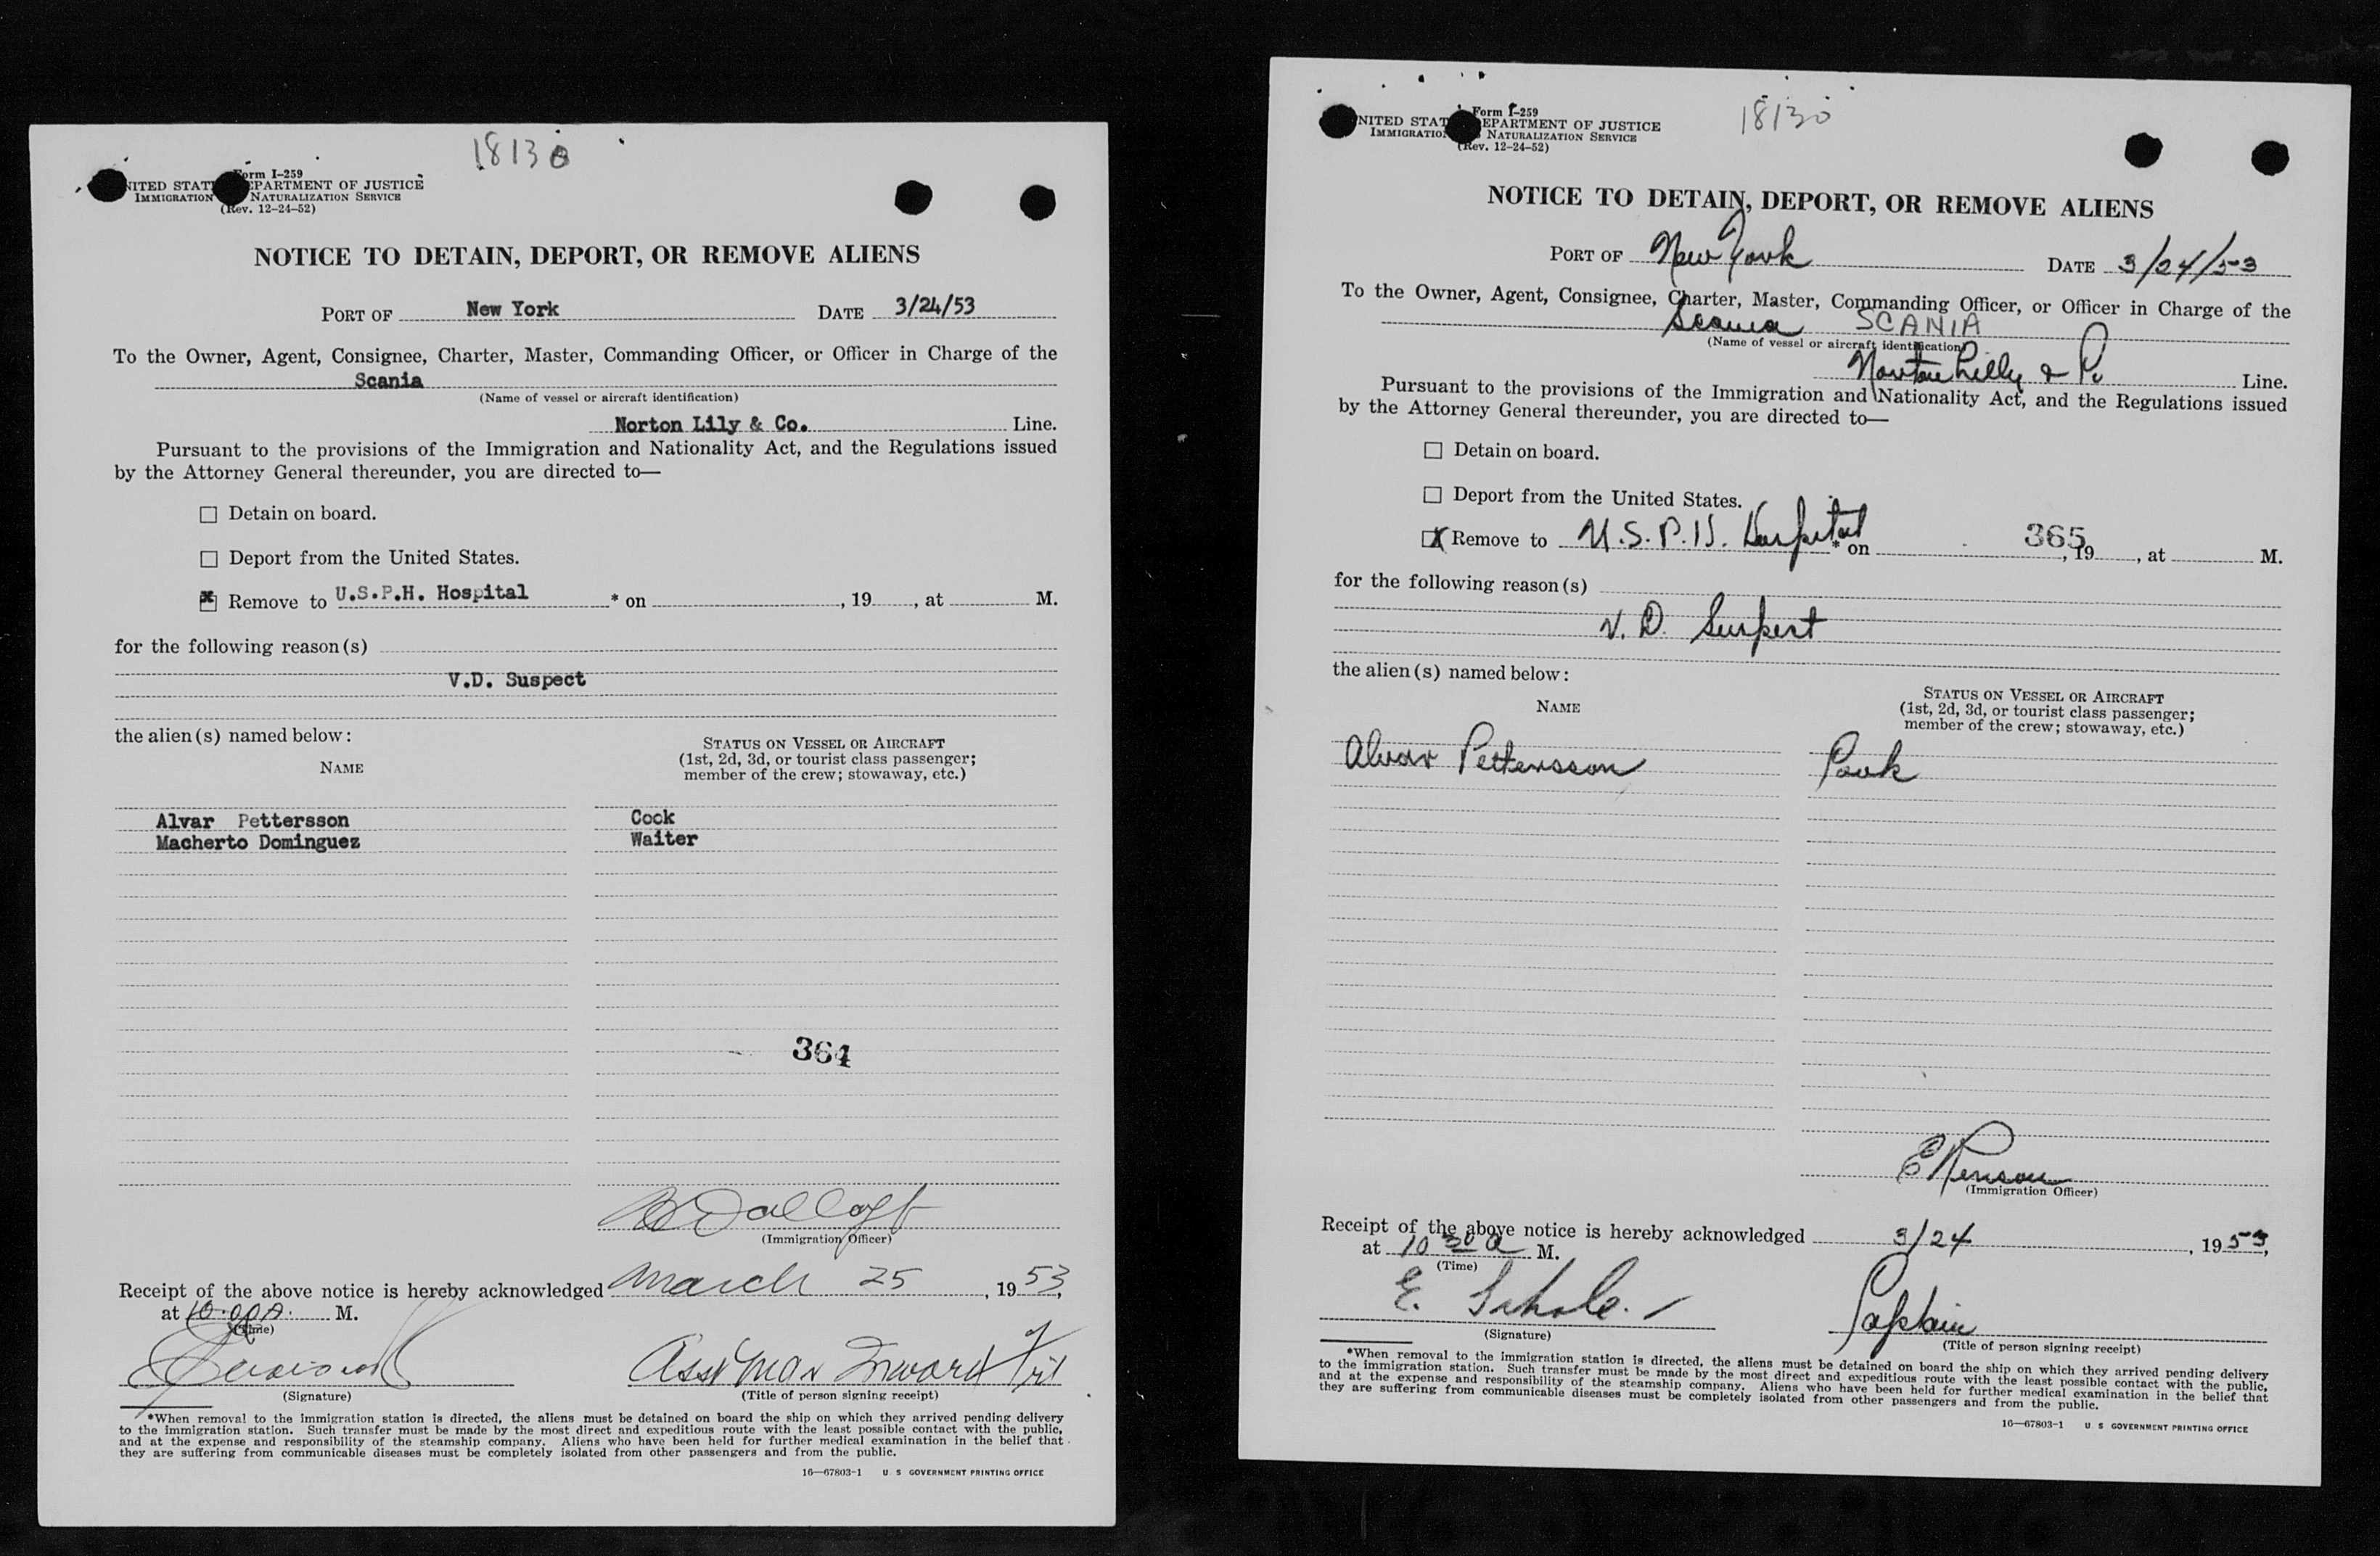 18130
Form I-259
UNITED STATES DEPARTMENT OF JUSTICE
IMMIGRATION NATURALIZATION SERVICE
(Rev. 12-24-52)
NOTICE TO DETAIN, DEPORT, OR REMOVE ALIENS
PORT OF New York DATE 3/24/53
To the Owner, Agent, Consignee, Charter, Master, Commanding Officer, or Officer in Charge of the
Scania
(Name of vessel or aircraft identification)
Norton Lily & Co. Line.
Pursuant to the provisions of the Immigration and Nationality Act, and the Regulations issued
by the Attorney General thereunder, you are directed to—
☐ Detain on board.
☐ Deport from the United States.
☒ Remove to U.S.P.H. Hospital * on , 19 , at M.
for the following reason(s)
V.D. Suspect
the alien(s) named below:
NAME
STATUS ON VESSEL OR AIRCRAFT
(1st, 2d, 3d, or tourist class passenger;
member of the crew; stowaway, etc.)
Alvar Pettersson Cock
Macherto Dominguez Waiter
364
(Immigration Officer)
Receipt of the above notice is hereby acknowledged March 25, 1953,
at 10:00 A. M.
(Time)
(Signature)
(Title of person signing receipt)
*When removal to the immigration station is directed, the aliens must be detained on board the ship on which they arrived pending delivery
to the immigration station. Such transfer must be made by the most direct and expeditious route with the least possible contact with the public,
and at the expense and responsibility of the steamship company. Aliens who have been held for further medical examination in the belief that
they are suffering from communicable diseases must be completely isolated from other passengers and from the public.
16—67803-1 U. S. GOVERNMENT PRINTING OFFICE
18130
Form I-259
UNITED STATES DEPARTMENT OF JUSTICE
IMMIGRATION NATURALIZATION SERVICE
(Rev. 12-24-52)
NOTICE TO DETAIN, DEPORT, OR REMOVE ALIENS
PORT OF New York DATE 3/24/53
To the Owner, Agent, Consignee, Charter, Master, Commanding Officer, or Officer in Charge of the
Scania SCANIA
(Name of vessel or aircraft identification)
Norton Lilly & Co Line.
Pursuant to the provisions of the Immigration and Nationality Act, and the Regulations issued
by the Attorney General thereunder, you are directed to—
☐ Detain on board.
☐ Deport from the United States.
☒ Remove to U.S.P.H. Hospital * on , 19 , at M.
365
for the following reason(s)
V. D. Suspect
the alien(s) named below:
NAME
STATUS ON VESSEL OR AIRCRAFT
(1st, 2d, 3d, or tourist class passenger;
member of the crew; stowaway, etc.)
Alvar Pettersson Cook
(Immigration Officer)
Receipt of the above notice is hereby acknowledged 3/24, 1953,
at 10 30 a M.
(Time)
E.
(Signature)
Captain
(Title of person signing receipt)
*When removal to the immigration station is directed, the aliens must be detained on board the ship on which they arrived pending delivery
to the immigration station. Such transfer must be made by the most direct and expeditious route with the least possible contact with the public,
and at the expense and responsibility of the steamship company. Aliens who have been held for further medical examination in the belief that
they are suffering from communicable diseases must be completely isolated from other passengers and from the public.
16—67803-1 U. S. GOVERNMENT PRINTING OFFICE